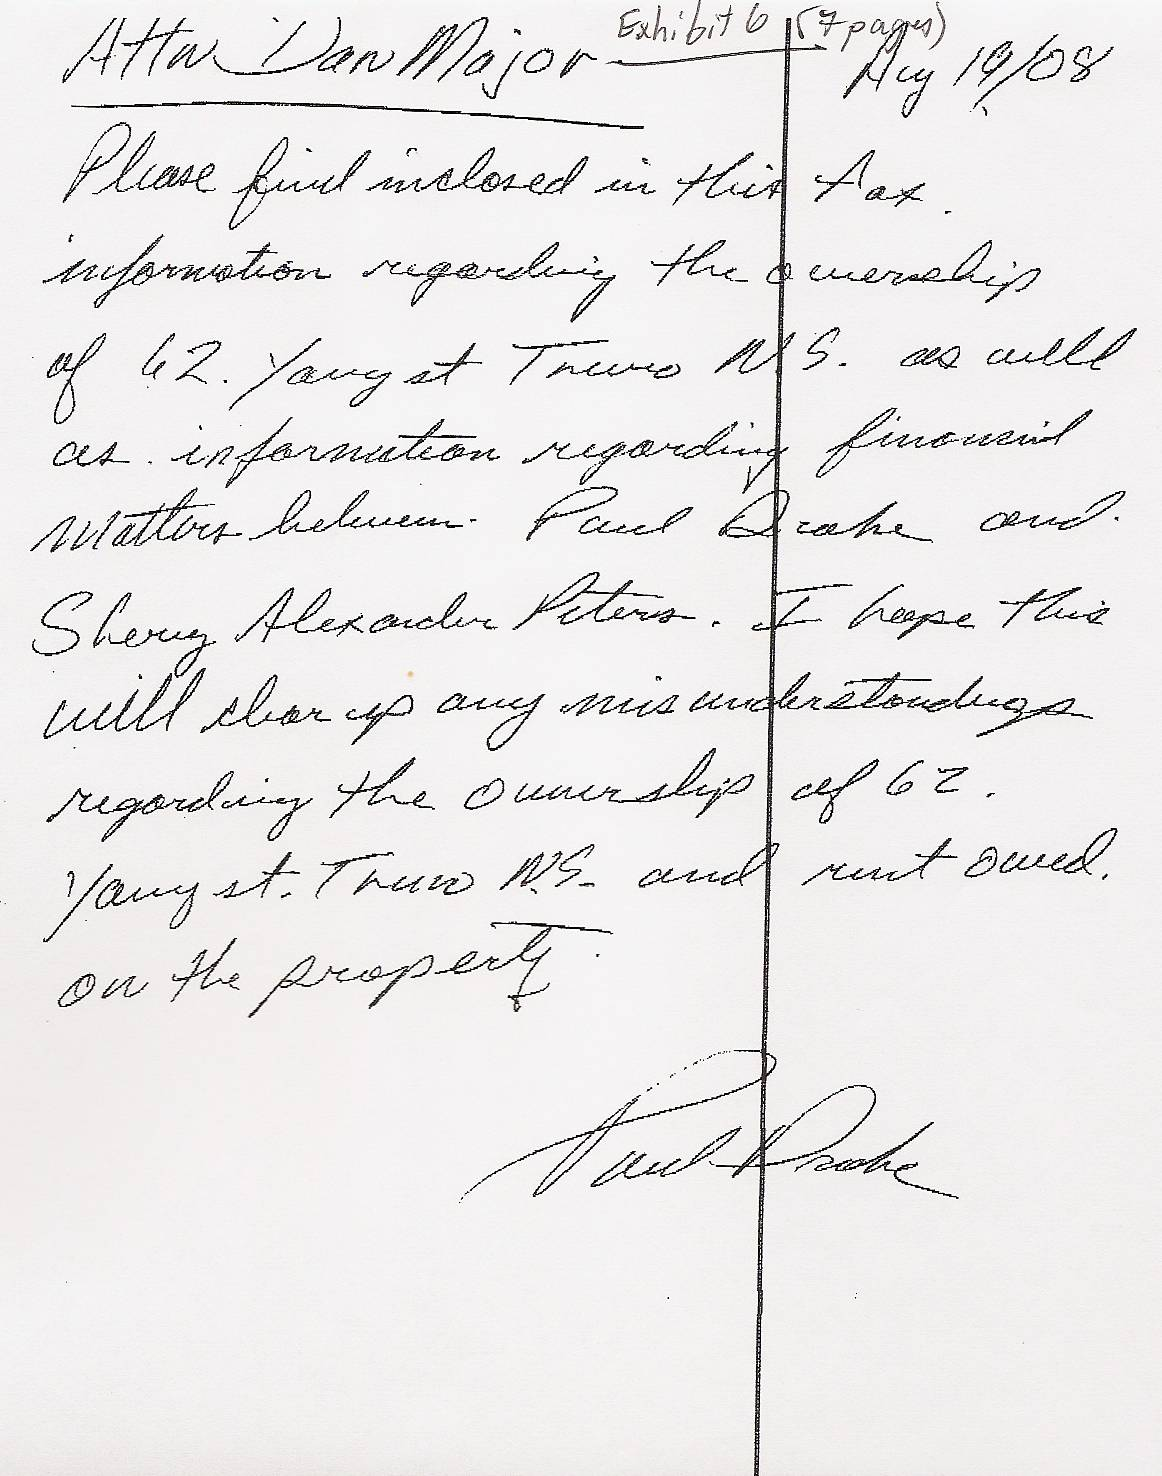 Exhibit 6 (7 pages)
Attn Dan Major Aug 19/08
Please find inclosed in this fax.
information regarding the ownership
of 62. Young st Truro N.S. as well
as. information regarding financial
Matters between. Paul Drake and.
Sherry Alexander Peters. I hope this
will clear up any misunderstandings
regarding the ownership of 62.
Young st. Truro N.S. and rent owed.
on the property.
Paul Drake